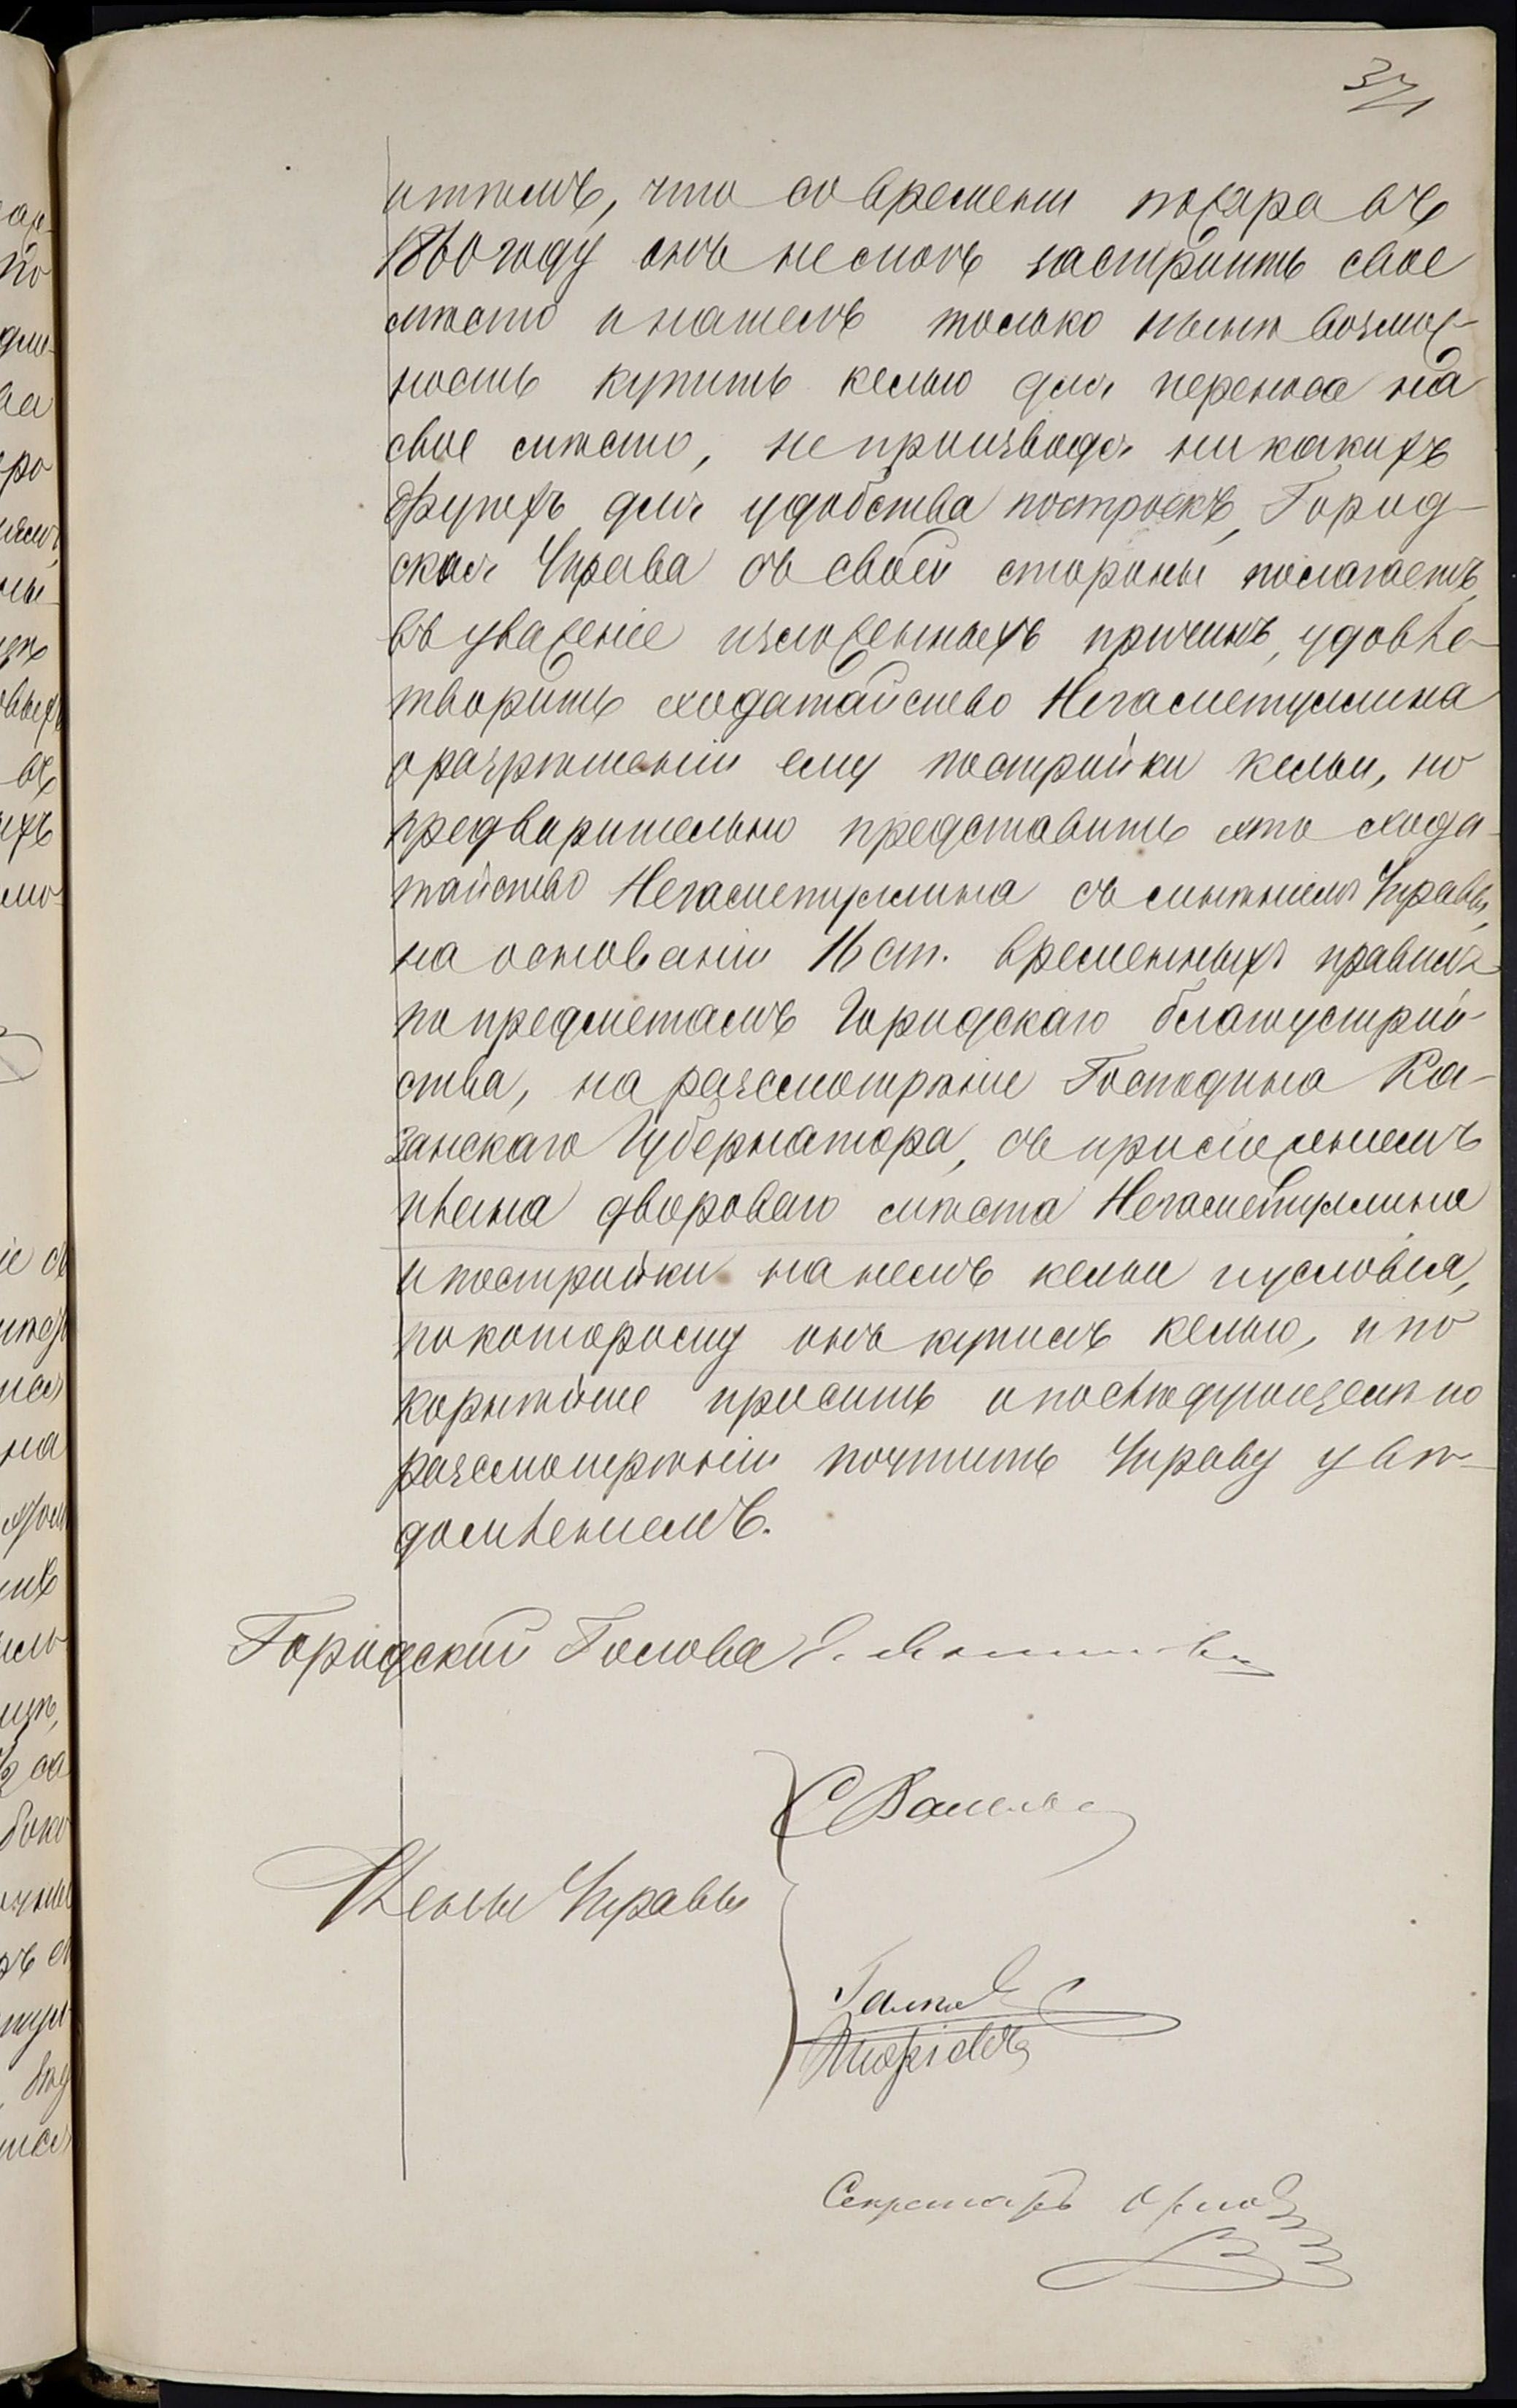 371
и тѣмъ, что со времени пожара въ
1860 году онъ не смогъ застроить свое
мѣсто и нашелъ только нынѣ возмож-
ность купить келью для переноса на
свое мѣсто, не производя никакихъ
другихъ для удобства построекъ, Город-
ская Управа съ своей стороны полагаетъ,
въ уваженіе изложенныхъ причинъ, удовле-
творить ходатайство Негаметуллина
о разрѣшеніи ему постройки кельи, но
предварительно представить это хода-
тайство Негаметуллина съ мнѣніемъ Управы,
на основаніи 16 ст. временныхъ правилъ
по предметамъ Городскаго благоустрой-
ства, на разсмотрѣніе Господина Ка-
занскаго Губернатора, съ приложеніемъ
плана двороваго мѣста Негаметуллина
и постройки на немъ кельи и условія,
по которому онъ купилъ келью, и по
корнѣйше просить о послѣдующемъ по
разсмотрѣніи почтить Управу увѣ-
домленіемъ.
Городской Голова
Члены Управы
Секретарь